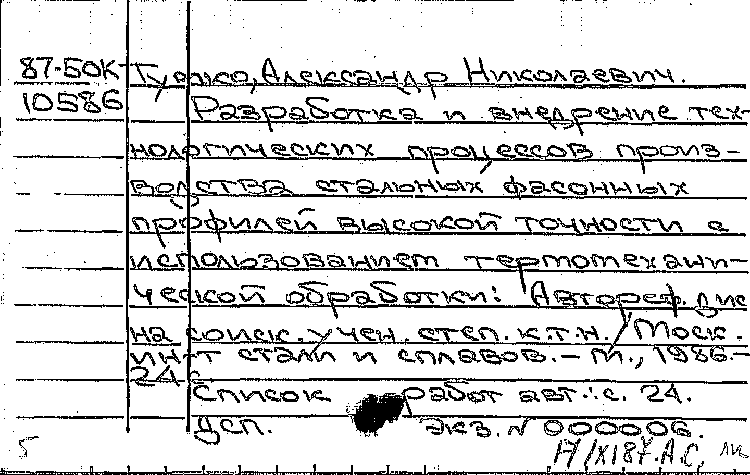 87-50К Гурко, Александр Николаевич.
10586 Разработка и внедрение тех-
нологических процессов произ-
водства стальных фасонных
профилей высокой точности с
использованием термомехани-
ческой обработки: Автореф. дис
на соиск. учен. степ. к.т.н. / Моск.
ин-т стали и сплавов. – М., 1986.–
24 с
Список работ авт.: с. 24.
экз. № 000006.
5 17/IX187. А.С,